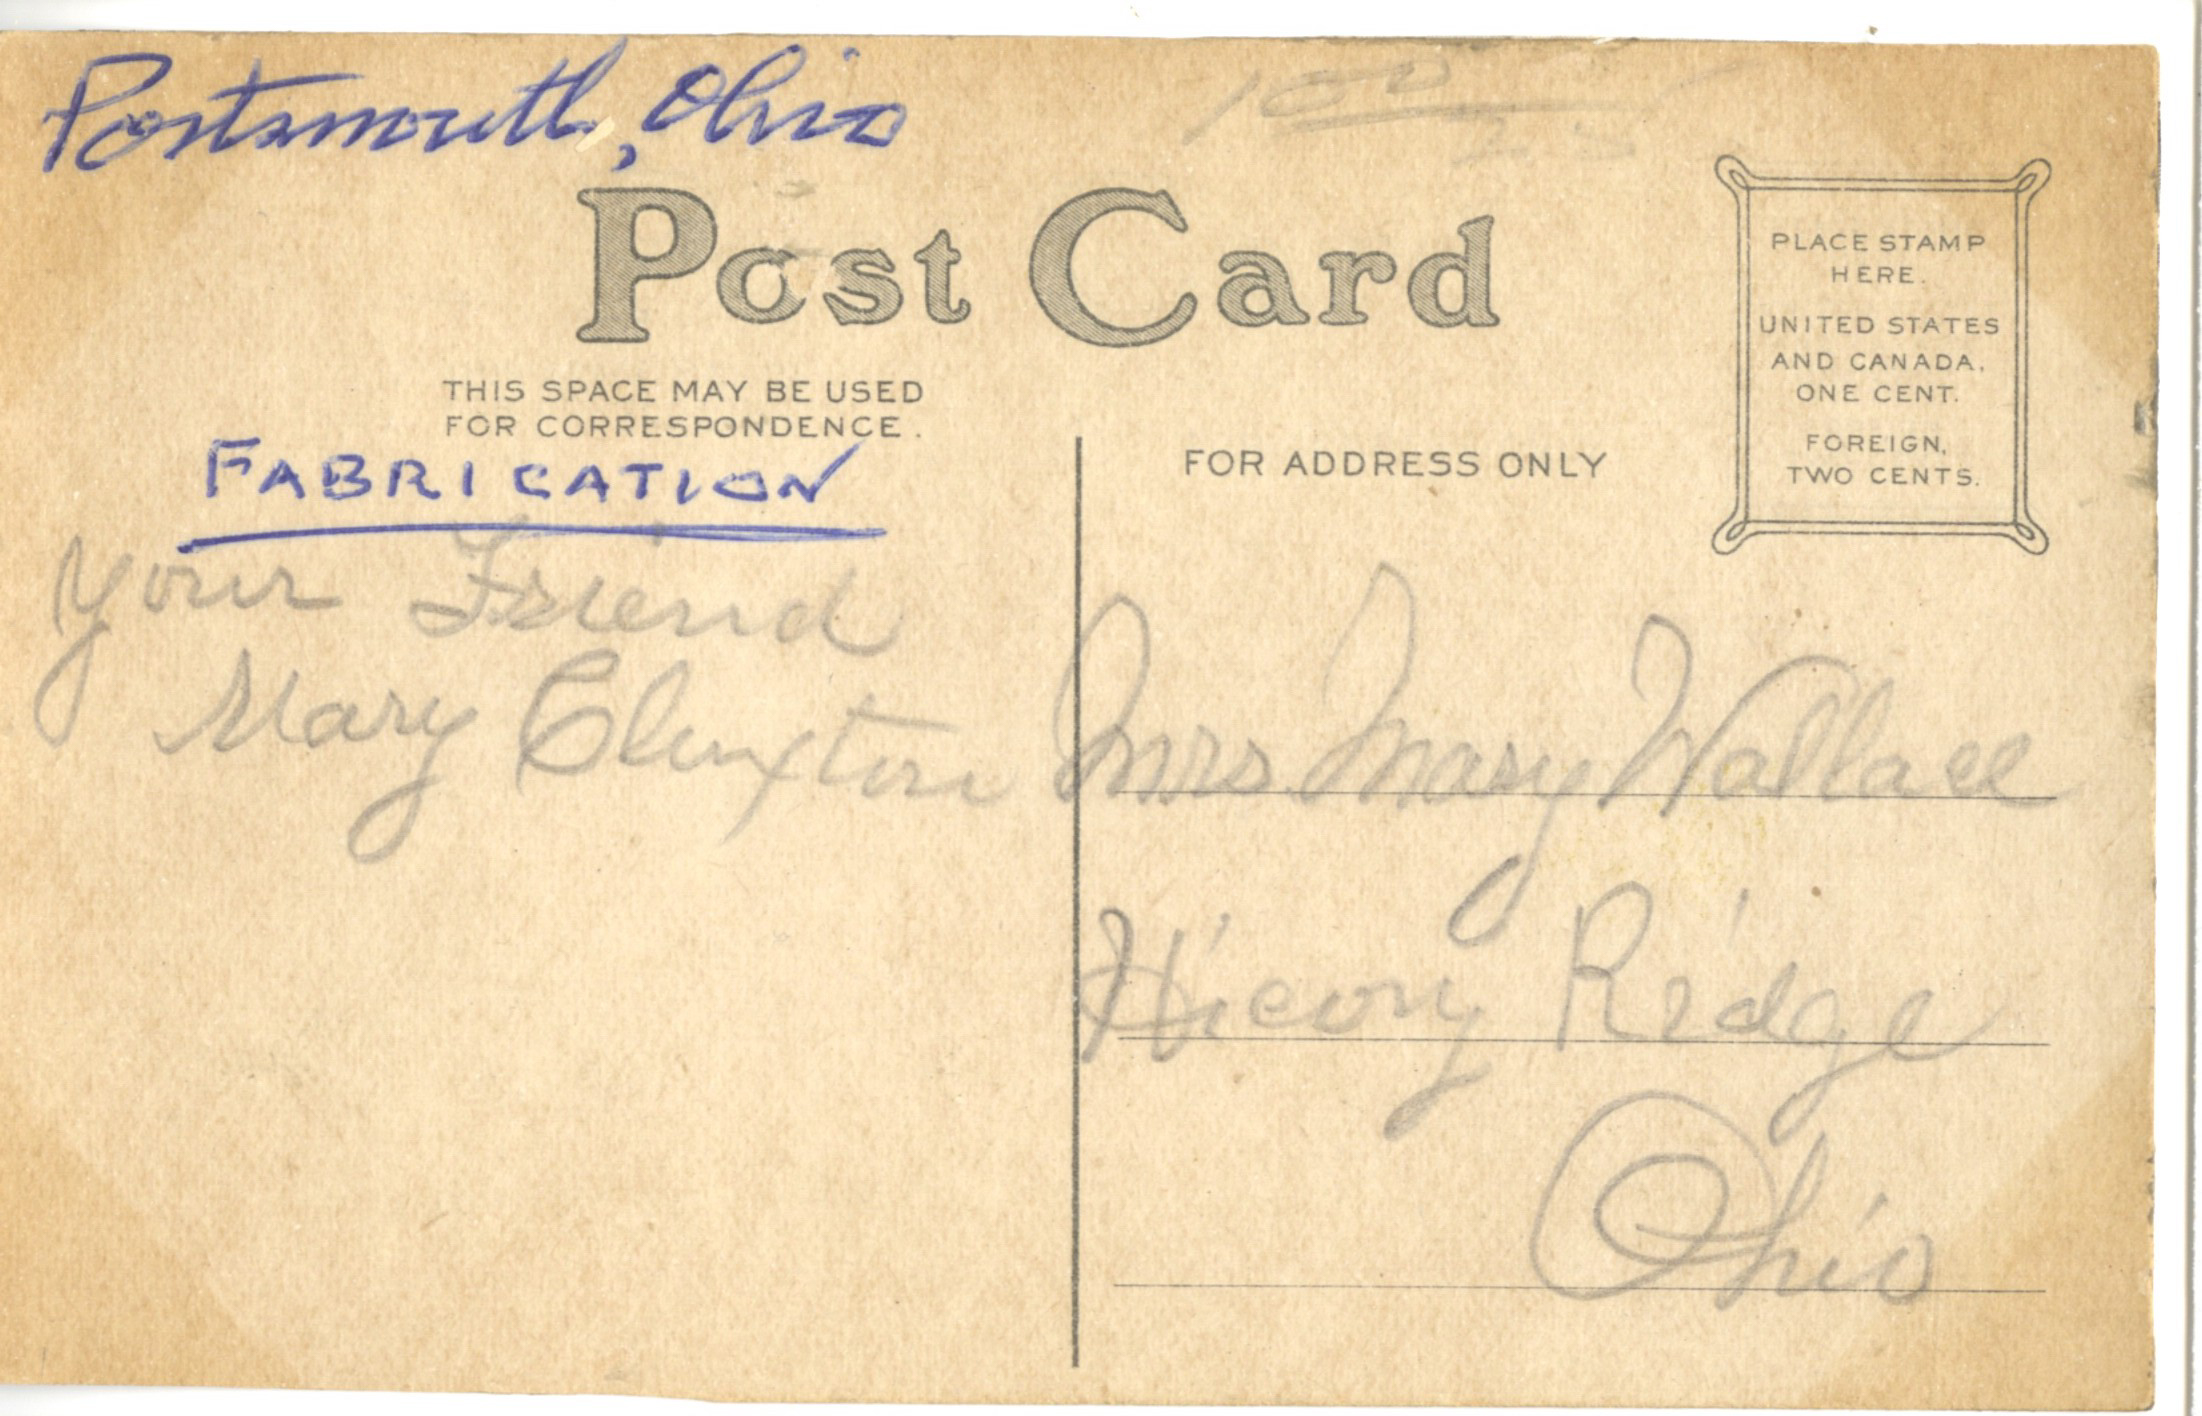 Portsmouth, Ohio
100
25
Post Card
THIS SPACE MAY BE USED
FOR CORRESPONDENCE.
FABRICATION
your Friend
Mary Cluxton
FOR ADDRESS ONLY
PLACE STAMP
HERE.
UNITED STATES
AND CANADA,
ONE CENT.
FOREIGN,
TWO CENTS.
Mrs Mary Wallace
Hicory Ridge
Ohio